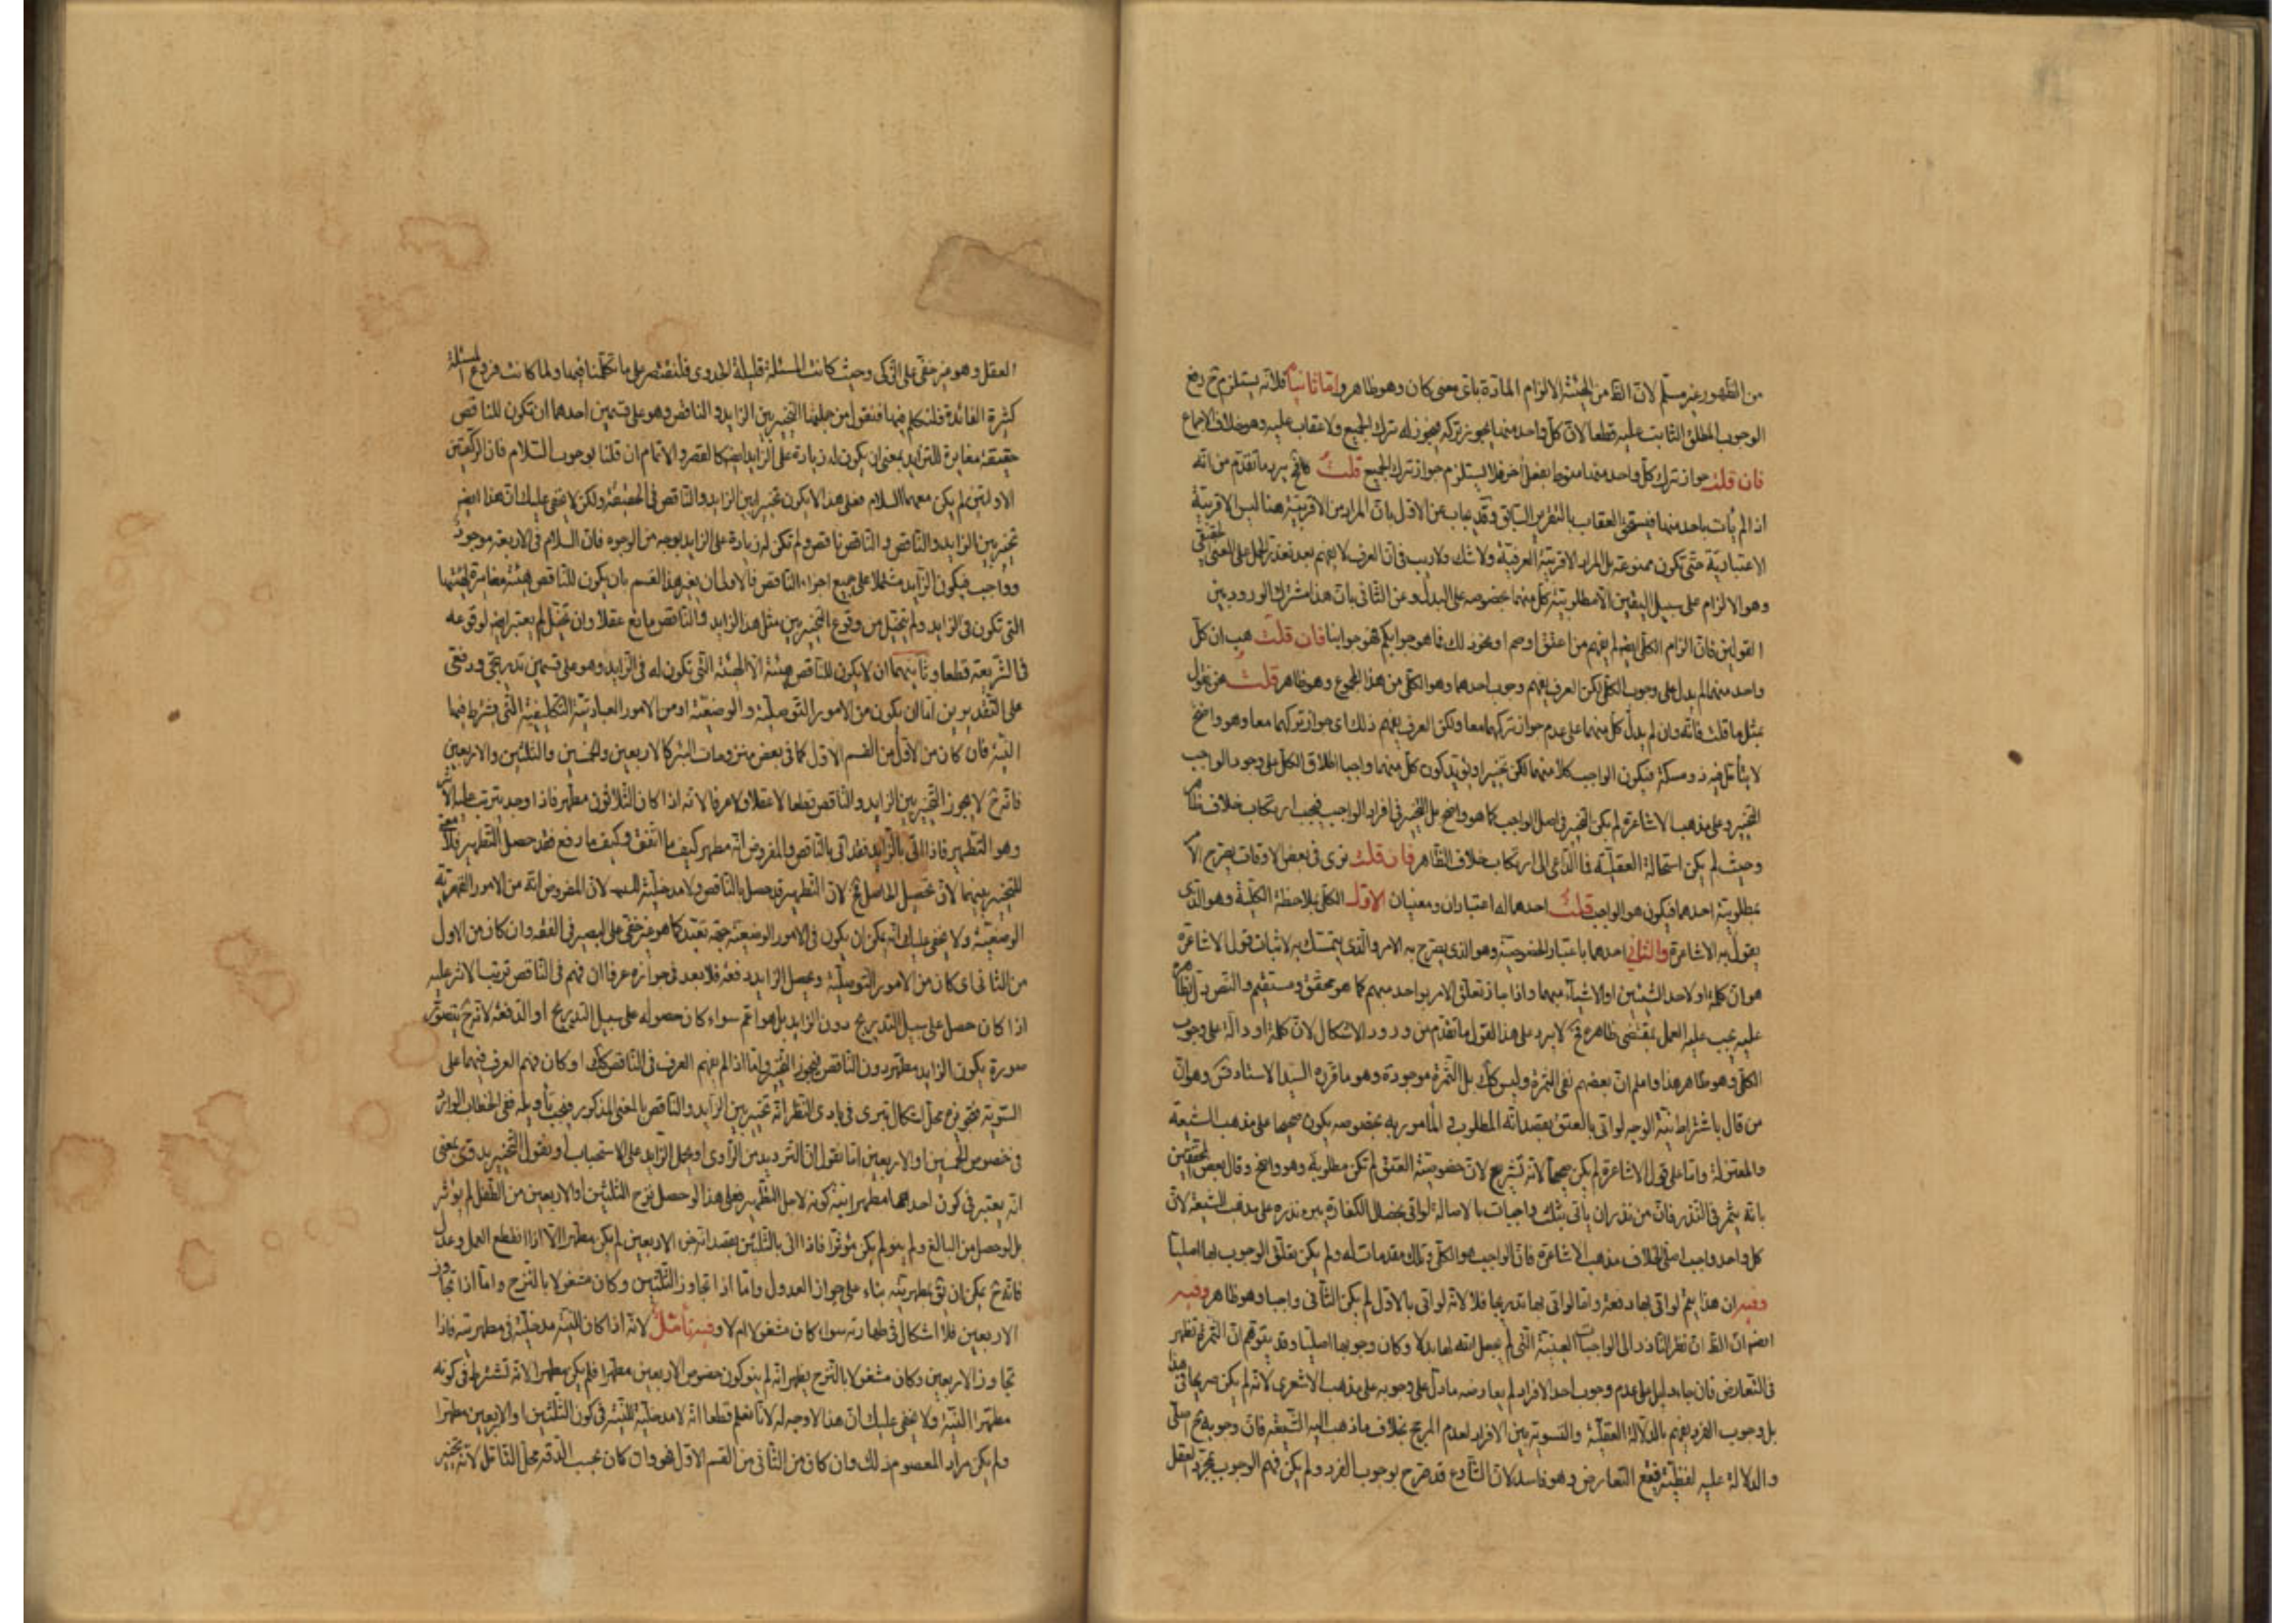 من الظهور غير مسلم لان الظ من الهيئة الالزام المادة باى معنى كان وهو ظاهر واما ثانيا فلانه يستلزم ح رفع
الوجوب المطلق الثابت عليه قطعا لان كل واحد منهما يجوز تركه فيجوز له ترك الجميع ولا عقاب عليه وهو خلاف الاجماع
فان قلت جواز ترك كل واحد منهما منوط بفعل آخر فلا يستلزم جواز ترك الجميع قلت فح يرد ما تقدم من انه
اذا لم يأت باحد منهما فيستحق العقاب بالتقرير السابق وقد يجاب عن الاول بان المراد من الاقربية هنا ليس الاقربية
الاعتبارية حتى تكون ممنوعة بل المراد الاقربية العرفية ولا شك ولا ريب فى ان العرف لا يفهم بعد تعذر الحمل على المعنى الحقيقى
وهو الالزام على سبيل اليقين الا مطلوبية كل منهما بخصوصه على البدل وعن الثانى بان هذا مشترك الورود بين
القولين فان الزام الكلى ايضا لم يفهم من اعتق او صم او نحو ذلك فما هو جوابكم فهو جوابنا فان قلت هب ان كل
واحد منهما لم يدل على وجوب الكلى لكن العرف يفهم وجوب احدهما وهو الكلى من هذا المجموع وهو ظاهر قلت نحن نقول
بمثل ما قلت فانه وان لم يدل كل منهما على عدم جواز تركهما معا ولكن العرف يفهم ذلك اى جواز تركهما معا وهو واضح
لا يتأمل فيه ذو مسكة فيكون الواجب كلا منهما لكن تخييرا ويؤيد كون كل منهما واجبا اطلاق الكل على وجود الواجب
التخييرى وعلى مذهب الاشاعرة لم يكن التخيير فى اصل الواجب كما هو واضح بل التخيير فى افراد الواجب فيجب ارتكاب خلاف ظاهر
وحيث لم يكن استحالة العقلية فما الداعى الى ارتكاب خلاف الظاهر فان قلت نرى فى بعض الاوقات يصرح الامر
بمطلوبية احدهما فيكون هو الواجب قلت احدهما له اعتباران ومعنيان الاول الكل بملاحظة الكلية وهو الذى
يقول به الاشاعرة والثانى احدهما باعتبار الخصوصية وهو الذى يصرح به الامر والذى يتمسك به لاثبات قول الاشاعرة
هو ان كلمة او لاحد الشيئين او الاشياء مبهما واذا جاز تعلق الامر بواحد مبهم كما هو محقق ومستقيم والنص دل بظاهره
عليه يجب عليه العمل بمقتضى ظاهره فح لا يرد على هذا القول ما تقدم من ورود الاشكال لان كلمة او دالة على وجوب
الكلى وهو ظاهر هذا واعلم ان بعضهم نفى الثمرة وليس كك بل الثمرة موجودة وهو ما قرره السيد الاستاد قس وهو ان
من قال باشتراط نية الوجه لو اتى بالعتق بقصد انه المطلوب و المأمور به بخصوصه يكون صحيحا على مذهب الشيعة
والمعتزلة واما على قول الاشاعرة لم يكن صحيحا لانه تشريع لان خصوصية العتق لم تكن مطلوبة وهو واضح وقال بعض المحققين
بانه يثمر فى النذر فان من نذر ان يأتى بثلث واجبات بالاصالة لو اتى بخصال الكفارة يبرء نذره على مذهب الشيعة لان
كل واحد واجب اصلى بخلاف مذهب الاشاعرة فان الواجب هو الكلى وتلك مقدمات له ولم يكن تعلق الوجوب بها اصليا
وفيه ان هذا يتم لو اتى بها دفعة واما لو اتى بها تدريجا فلا لانه لو اتى بالاول لم يكن الثانى واجبا وهو ظاهر وفيه
ايضا ان الظ ان نظر الناذر الى الواجبات العينية التى لم يجعل الله لها بدلا وكان وجوبها اصليا وقد يتوهم ان الثمرة تظهر
فى التعارض فان جاء دليل على عدم وجوب احد الافراد لم يعارضه ما دل على وجوبه على مذهب الاشعرى لانه لم يكن صريحا فى هذا
بل وجوب الفرد يفهم بالدلالة العقلية والتسوية بين الافراد لعدم المرجح بخلاف ما ذهب اليه الشيعة فان وجوبه ح اصلى
والدلالة عليه لفظية فيقع التعارض وهو فاسد لان الشارع قد صرح بوجوب الفرد ولم يكن فهم الوجوب بمجرد العقل
العقل وهو غير خفى على الذكى وحيث كانت المسئلة قليلة الجدوى فلنقتصر على ما تكلمنا فيها ولما كانت فروع المسئلة
كثيرة الفائدة فلنتكلم فيها فنقول من جملتها التخيير بين الزايد و الناقص وهو على قسمين احدهما ان تكون للناقص
حقيقة مغايرة للزايد بمعنى ان يكون له زيادة على الزايد ايضا كالقصر والاتمام ان قلنا بوجوب السلام فان الركعتين
الاولتين لم يكن معهما السلام فعلى هذا لا يكون تخييرا بين الزايد والناقص فى الحقيقة ولكن لا يخفى عليك ان هذا ايضا
تخيير بين الزايد والناقص و الناقص ناقص ولم تكن له زيادة على الزايد بوجه من الوجوه فان السلام فى الاربعة موجود
وواجب فيكون الزايد مشتملا على جميع اجزاء الناقص فالاولى ان يعبر هذا القسم بان يكون للناقص هيئة مغايرة لهيئتها
التى تكون فى الزايد ولم يتخيل من وقوع التخيير بين مثل هذا الزايد والناقص مانع عقلا وان تخيل لم يعتبر ايضا لوقوعه
فى الشريعة قطعا وثانيهما ان لا يكون للناقص هيئة الا الهيئة التى تكون له فى الزايد وهو على قسمين تدريجى ودفعى
على التقديرين اما ان يكون من الامور التوصلية والوضعية او من الامور العبادتية التكليفية التى يشترط فيها
النية فان كان من الاول من القسم الاول كما فى بعض منزوحات البئر كالاربعين والخمسين والثلثين والاربعين
فانه ح لا يجوز التخيير بين الزايد والناقص قطعا لا عقلا ولا عرفا لانه اذا كان الثلاثون مطهرا فاذا وجد يترتب عليه الاثر
وهو التطهير فاذا اتى بالزايد فقد اتى بالناقص والمفروض انه مطهر كيف ما اتفق وكيف ما وقع فقد حصل التطهير فلا معنى
للتخيير بينهما لان تحصيل الحاصل مح لان التطهير قد حصل بالناقص ولا مدخلية للنية لان المفروض انه من الامور القهرية
الوضعية ولا يخفى عليك انه يمكن ان يكون فى الامور الوضعية جهة تعبد كما هو غير خفى على البصير فى الفقه وان كان من الاول
من الثانى اى كان من الامور التوصلية وحصل الزايد دفعة فلا بعد فى جوازه عرفا ان فهم فى الناقص ترتب الاثر عليه
اذا كان حصل على سبيل التدريج دون الزايد بل هو اعم سواء كان حصوله على سبيل التدريج او الدفعة لانه ح يتصور
صورة يكون الزايد مطهرا دون الناقص فيجوز التخيير واما اذا لم يفهم العرف فى الناقص كذلك او كان فهم العرف فيهما على
السوية فهو فى محل اشكال يترى فى بادى النظر انه تخيير بين الزايد والناقص بالمعنى المذكور فيجب تأويله ففى الخطاب الوارد
فى خصوص الخمسين او الاربعين اما نقول ان الترديد من الراوى او يحمل الزايد على الاستحباب او نقول التخيير بدوى بمعنى
انه يعتبر فى كون احدهما مطهرا نية كونه لاجل التطهير فعلى هذا لو حصل نزح الثلثين او الاربعين من الطفل لم يؤثر
بل لو حصل من البالغ ولم ينو لم يكن مؤثرا فاذا اتى بالثلثين بقصد انه من الاربعين لم يكن مطهرا الا اذا انقطع العمل وعدل
فانه ح يمكن ان يق بمطهريته بناء على جواز العدول واما اذا تجاوز الثلثين وكان مشغولا بالنزح واما اذا تجاوز
الاربعين فلا اشكال فى طهارته سواء كان مشغولا ام لا وفيه تأمل لانه اذا كان للنية مدخلية فى مطهريته فاذا
تجاوز الاربعين وكان مشغولا بالنزح يظهر انه لم ينو كون خصوص الاربعين مطهرا فلم يكن مطهرا لانه تشترط فى كونه
مطهرا النية ولا يخفى عليك ان هذا لا وجه له لانا نعلم قطعا انه لا مدخلية للنية فى كون الثلثين او الاربعين مطهرا
ولم يكن مراد المعصوم ذلك وان كان من الثانى من القسم الاول فهو وان كان بحسب الدقة محل التأمل لانه تخيير